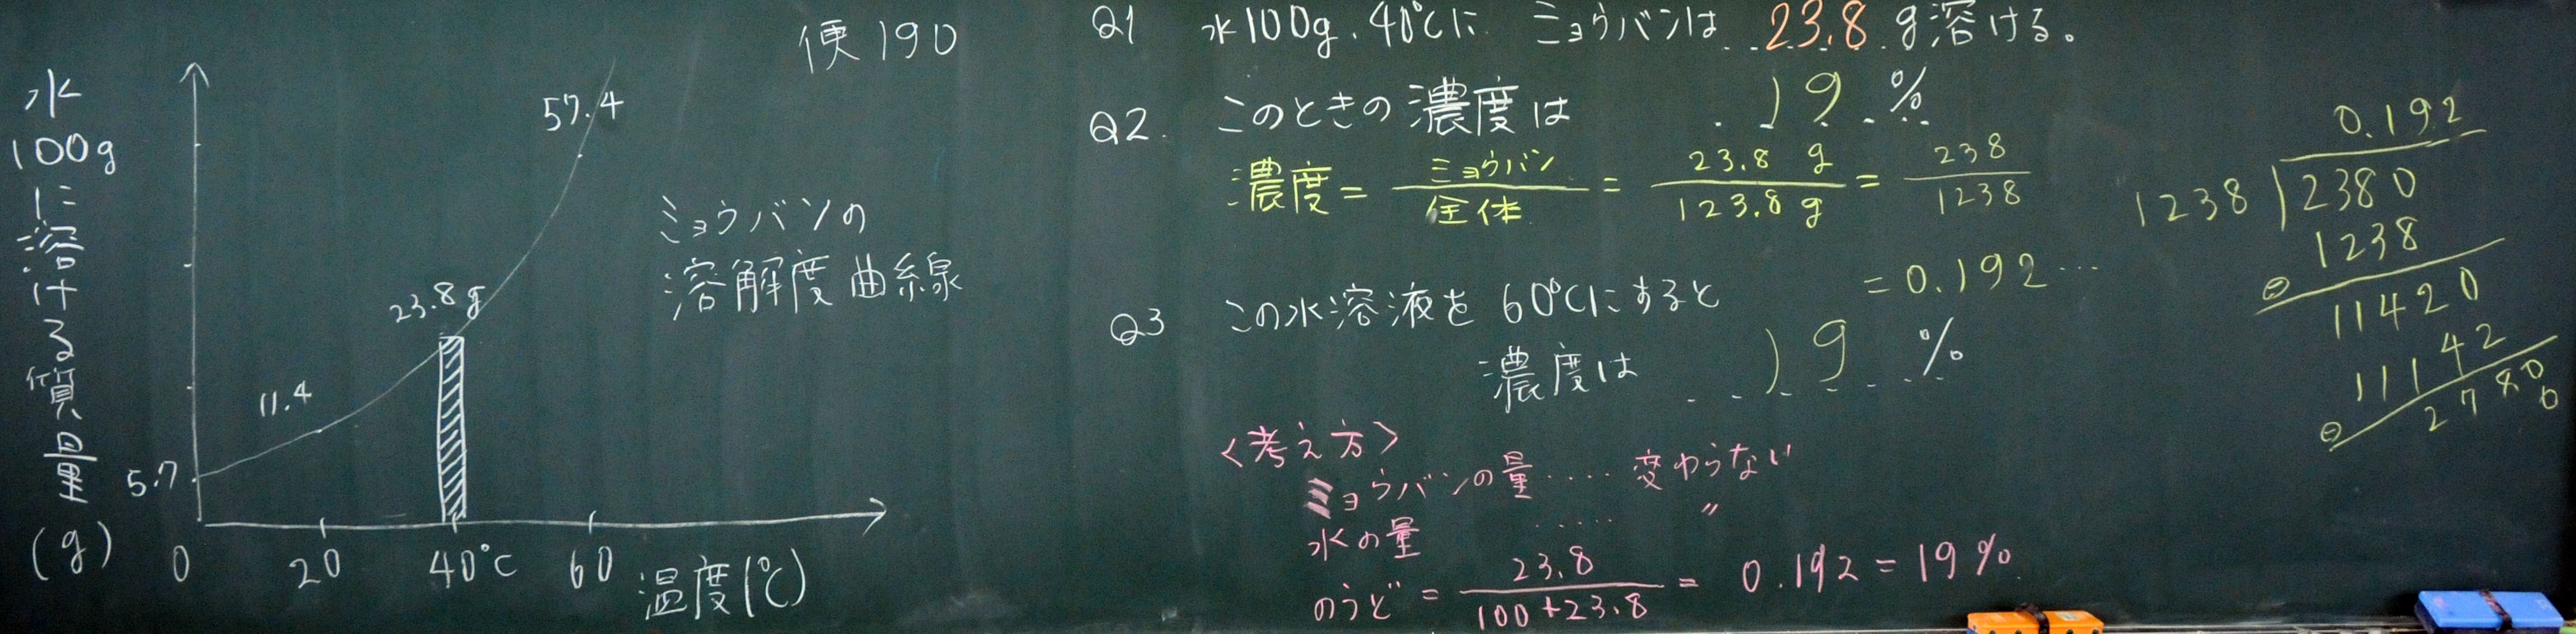 水100gに溶ける質量(g)
57.4
23.8g
11.4
5.7
0 20 40℃ 60 温度(℃)
便190
ミョウバンの
溶解度曲線
Q1 水100g、40℃に ミョウバンは 23.8 g溶ける。
Q2. このときの濃度は 19 %
濃度 = ミョウバン/全体 = 23.8 g/123.8 g = 238/1238
= 0.192…
Q3 この水溶液を 60℃にすると
濃度は 19 %
<考え方>
ミョウバンの量‥‥変わらない
水の量 ‥‥‥ 〃
のうど = 23.8/100+23.8 = 0.192 = 19%
0.192
1238)2380
1238
⊖
11420
11142
⊖
2780
0